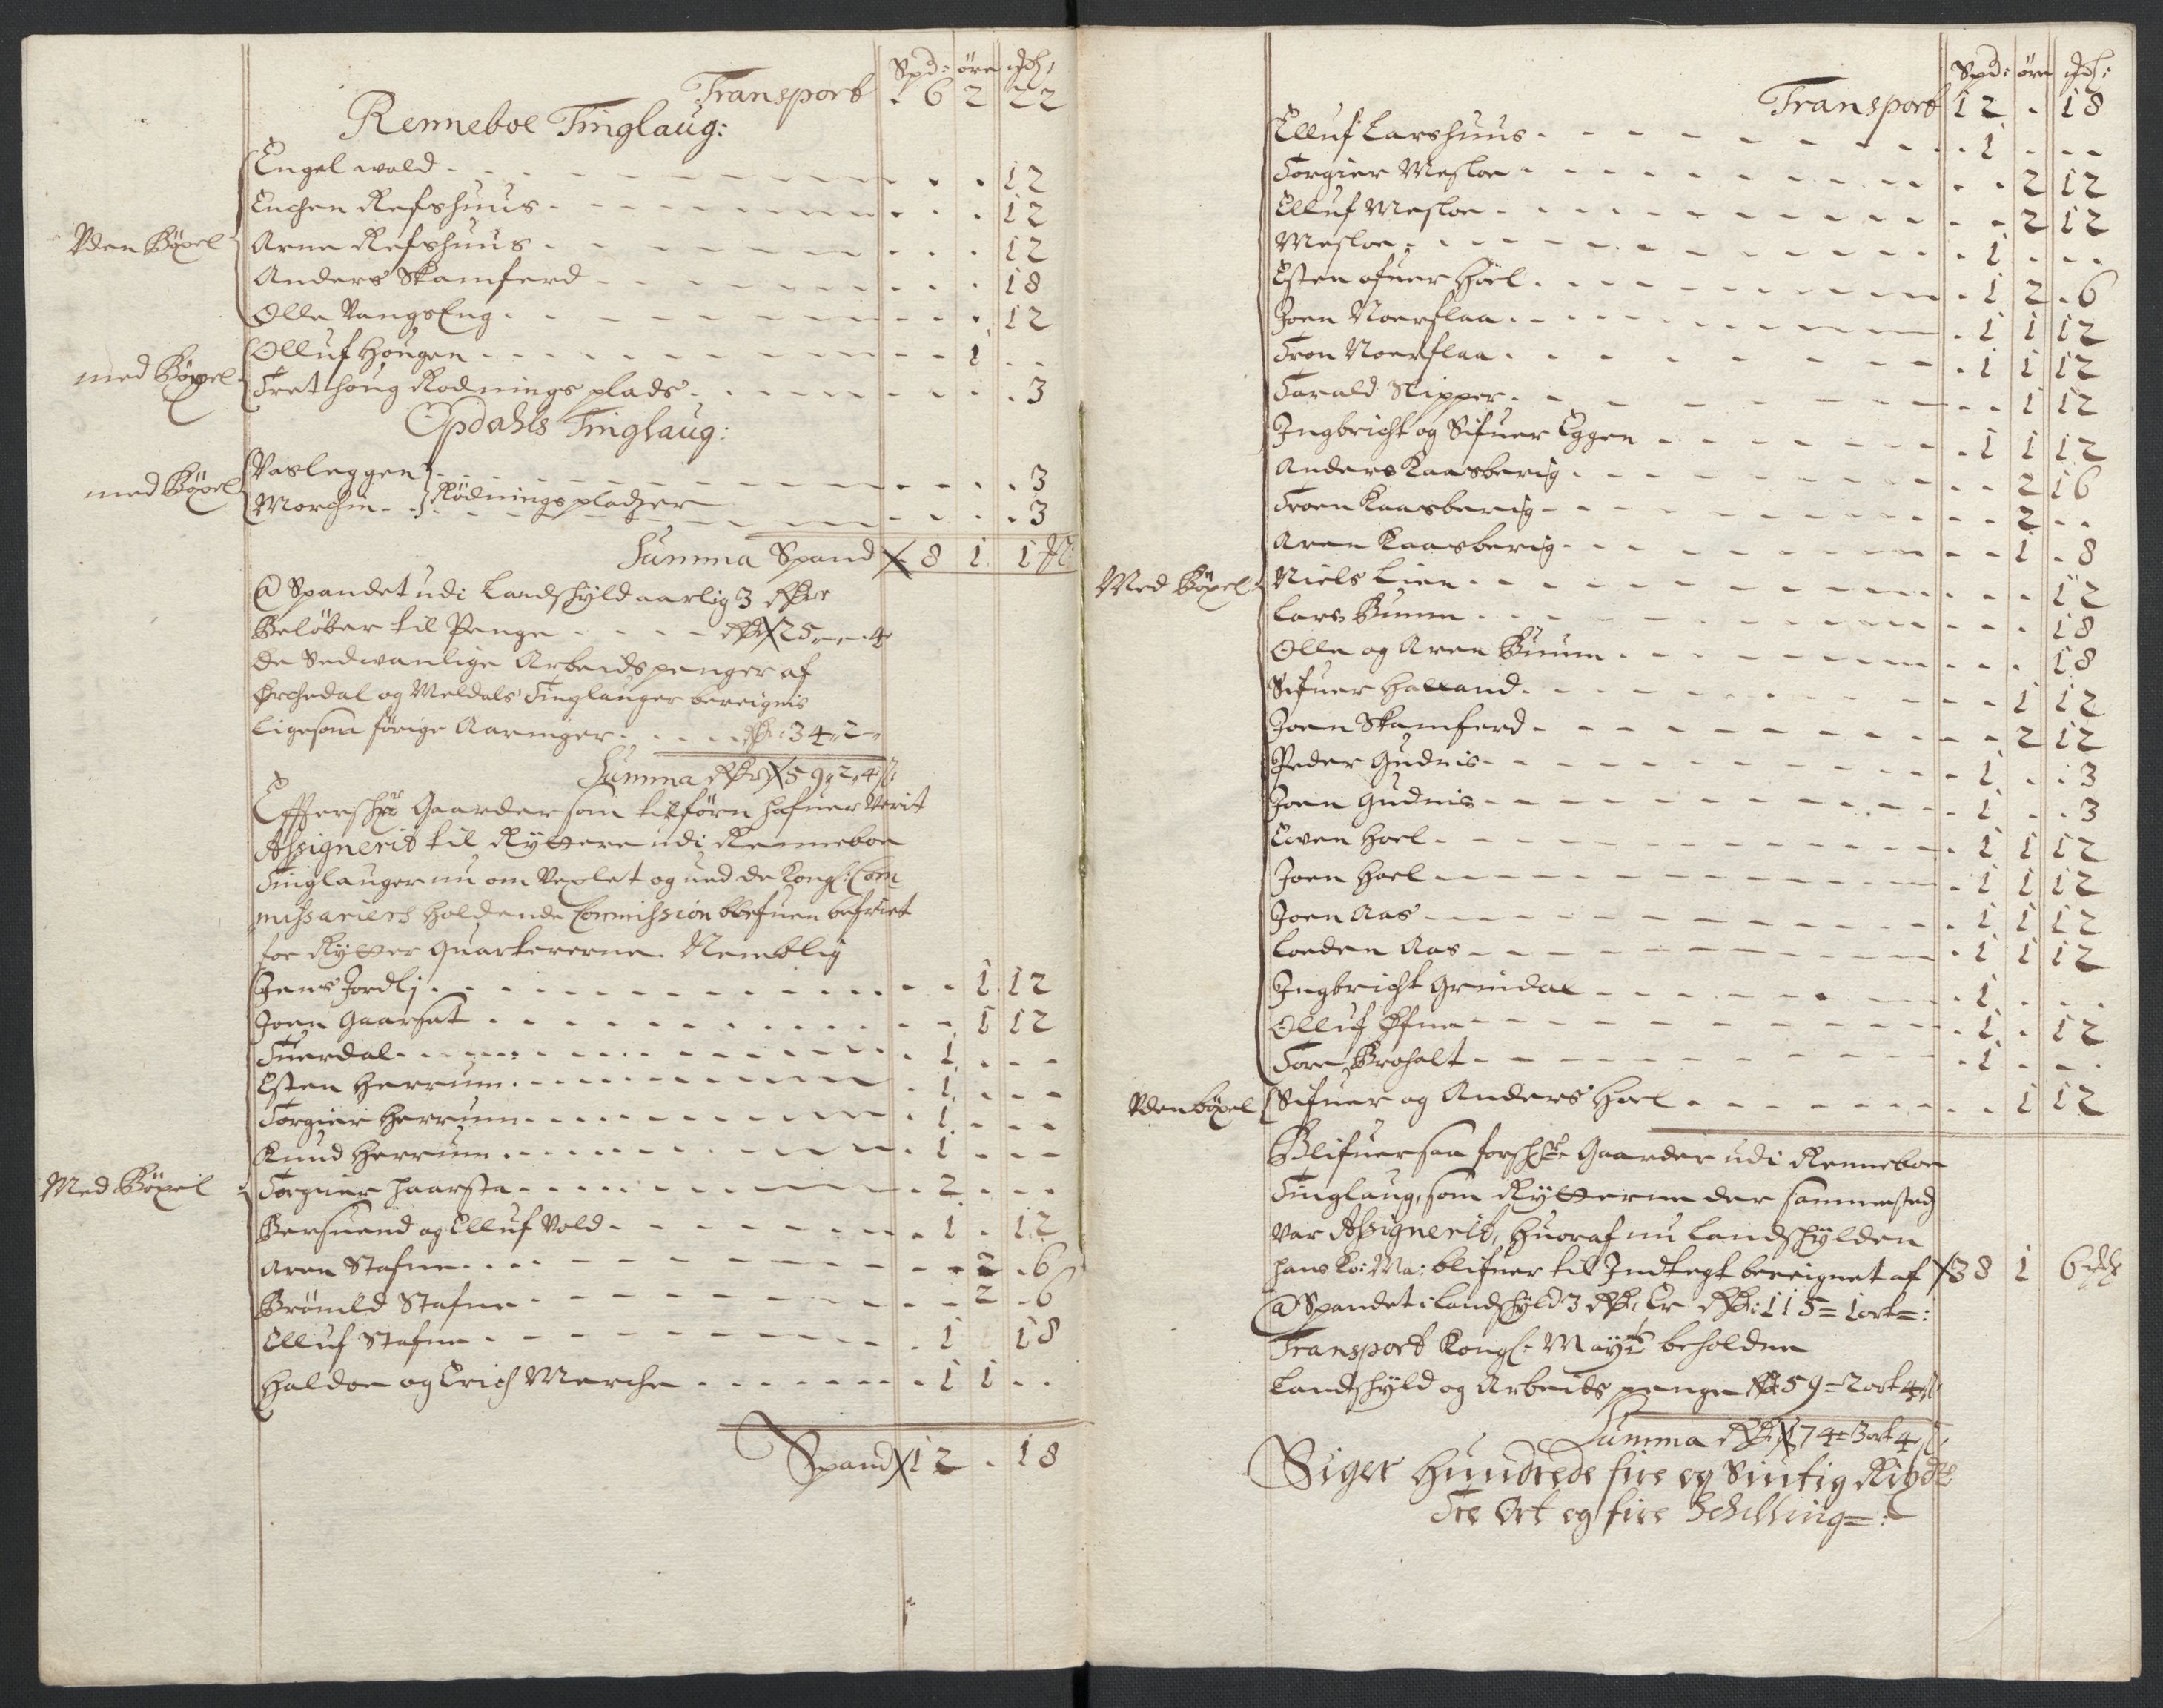 Spd: øre
Transport . 6 2 22
Renneboe Tinglaug:
Engel wold - - - . . . 12
Enchen Refshuus - - - . . . 12
Vden Böxel
Arne Refshuus - - - . . . 12
Anders Skamferd - - - . . . 18
Olle Vangs Eng - - - . . . 12
Olluf Hougen - - - 1 . .
med Böxel
Trethoug Rødnings plads - - - . . . 3
Opdahls Tinglaug:
med Böxel
Vasleggen - - - . . . 3
Morchin - Rödnings pladzer - - - . . . 3
Summa Spand 8 1 1
@ Spandet udi Landschyld aarlig 3
Beløber til Penge - - - 25 - - 4
De Sedwanlige Arbeidspenger af
Ørchedal og Meldals Tinglauger bereignis
ligesom förige Aaringer - - - 34 - 2 -
Summa 59 - 2 - 4
Effterschr: Gaarder som tilførn hafuer Verit
Assignerit til Ryttere udi Renneboe
Tinglauger nu om Vexlet og ved de Kongl: Com
missariers holdende Commission blefuen befriet
for Rytter Quartererne. Nemblig
Jens Jordlj - - - 1 12
Joen Gaarset - - - 1 12
Tuerdal - - - 1 . .
Esten Herrum - - - 1 . .
Torgier Herrum - - - 1 . .
Knud Herrum - - - 1 . .
Med Böxel
Torgier Haarsta - - - 2 . .
Bersuend og Elluf Vold - - - 1 . 12
Aren Stafne - - - 2 . 6
Brönild Stafne - - - 2 . 6
Elluf Stafne - - - 1 18
Haldoe og Erich Merche - - - 1 1 . .
Spand 12 . 18
Spd: øre
Transport 12 . 18
Elluf Larshuus - - - 1 . .
Torgier Mesloe - - - 2 12
Elluf Mesloe - - - 2 12
Mesloe - - - 1 . .
Esten ofuer Höel - - - 1 2 . 6
Joen Noerflaa - - - 1 1 12
Tron Noerflaa - - - 1 1 12
Tarald Nipper - - - 1 12
Jngbricht og Sifuer Eggen - - - 1 1 12
Anders Kaasberig - - - 2 16
Troen Kaasberig - - - 2 . .
Aren Kaasberig - - - 1 . 8
Med Böxel
Niels Lien - - - 12
Lars Buum - - - 18
Olle og Aren Buum - - - 18
Sifuer Halland - - - 1 12
Joen Skamferd - - - 2 12
Peder Gudnis - - - 1 . . 3
Joen Gudnis - - - 1 . . 3
Even Hoel - - - 1 1 12
Joen Hoel - - - 1 1 12
Joen Aas - - - 1 1 12
Loeden Aas - - - 1 1 12
Jngbricht Grindal - - - 1 . .
Olluf Öfne - - - 1 . 12
Tore Brohalt - - - 1 . .
Vden böxel
Sifuer og Anders Hoel - - - 1 12
Blifuer saa forschr: Gaarder udi Renneboe
Tinglaug, som Rytterne der sammested
Var Assignerit, Huoraf nu Landschylden
Hans Ko: Ma: blifuer til Indtegt bereignet af 38 1 6
@ Spandet i Landschyld 3 Er 115 = 1 ort =:
Transport Kongl: Mayts beholden
Landschyld og Arbeids penge 59 = 2 ort 4
Summa 174 = 3 ort 4
Siger Hundrede fire og Siuftig Rixdr
Tre Ort og fire Schilling =: